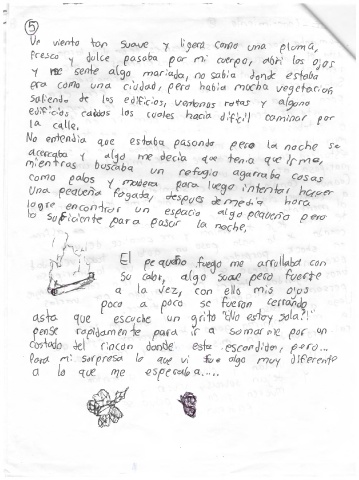 5
Un viento tan suave y ligero como una pluma,
fresco y dulce pasaba por mi cuerpo, abri los ojos
y me sente algo mariada, no sabia donde estaba
era como una ciudad, pero habia mucha vegetacion
saliendo de los edificios, ventanas rotas y alguno
edificios caidos los cuales hacia dificil caminar por
la calle.
No entendia que estaba pasando pero la noche se
acercaba y algo me decia que tenia que irme,
mientras buscaba un refugio agarraba cosas
como palos y madera para luego intentar hacer
una pequeña fogada, despues de media hora
logre encontrar un espacio algo pequeño pero
lo suficiente para pasar la noche,
El pequeño fuego me arrullaba con
su calor, algo suave pero fuerte
a la vez, con ello mis ojos
poco a poco se fueron cerrando
asta que escuche un grito "¿No estoy sola?!"
pense rapidamente para ir a somarme por un
costado del rincon donde esta escondida, pero...
Para mi sorpresa lo que vi fue algo muy diferente
a lo que me esperaba.....